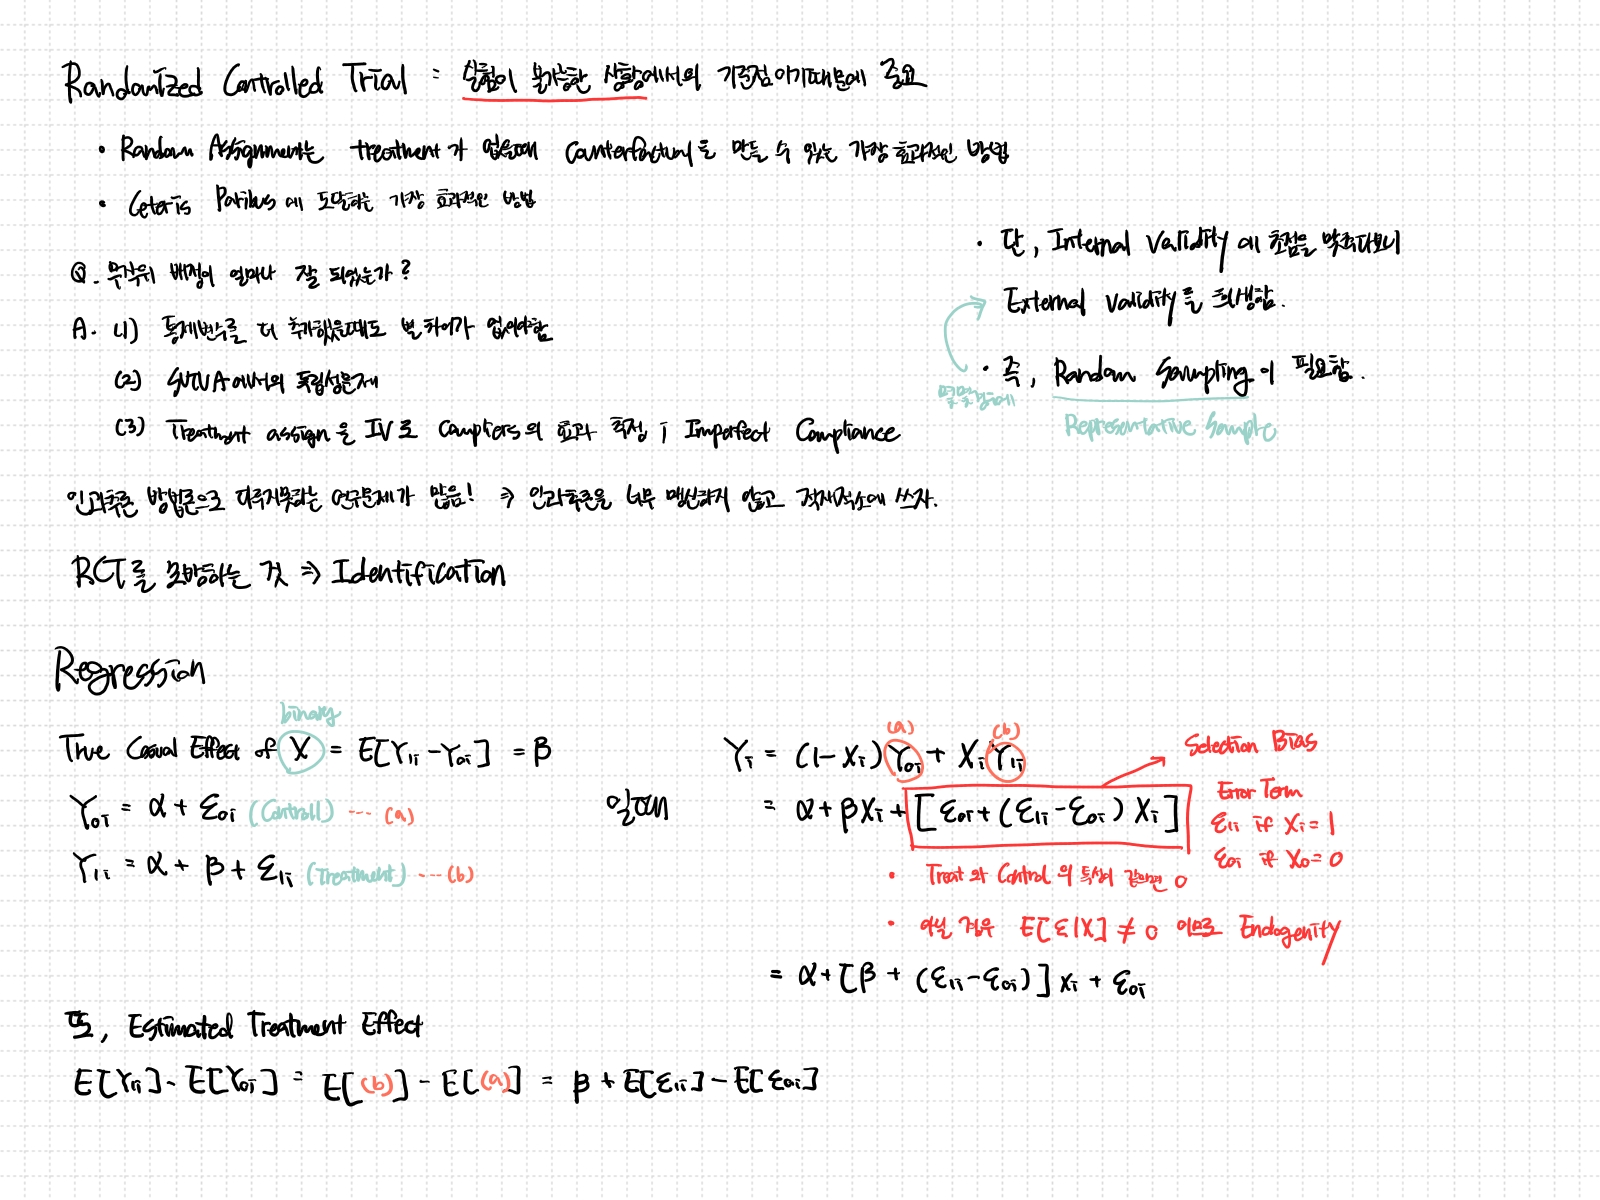 Randomized Controlled Trial : 실험이 불가능한 상황에서의 기준점이기때문에 중요
• Random Assignment는 treatment가 없을때 Counterfactual을 만들 수 있는 가장 효과적인 방법
• Ceteris Paribus에 도달하는 가장 효과적인 방법
Q. 무작위 배정이 얼마나 잘 되었는가?
A. (1) 통제변수를 더 추가했을때도 별 차이가 없어야함
(2) SUTVA에서의 독립성문제
(3) Treatment assign을 IV로 Compliers의 효과 측정 ; Imperfect Compliance
• 단, Internal Validity에 초점을 맞추다보니
External Validity를 희생함.
• 즉, Random Sampling이 필요함.
Representative Sample
인과추론 방법론으로 다루지못하는 연구문제가 많음! ⇒ 인과추론을 너무 맹신하지 않고 적재적소에 쓰자.
RCT를 모방하는 것 ⇒ Identification
Regression
binary
True Casual Effect of X = E[Y1i - Y0i] = β
Y0i = α + ε0i (Controll) ---- (a)
Y1i = α + β + ε1i (Treatment) --- (b)
일때
(a) (b)
Yi = (1 - Xi) Y0i + Xi Y1i
= α + βXi + [ε0i + (ε1i - ε0i) Xi]
Selection Bias
Error Term
ε1i if Xi = 1
ε0i if X0 = 0
• Treat와 Control의 특성이 같다면 0
• 아닐 경우 E[ε|X] ≠ 0 이므로 Endogenity
= α + [β + (ε1i - ε0i)] xi + ε0i
또, Estimated Treatment Effect
E[Y1i] - E[Y0i] = E[(b)] - E[(a)] = β + E[ε1i] - E[ε0i]